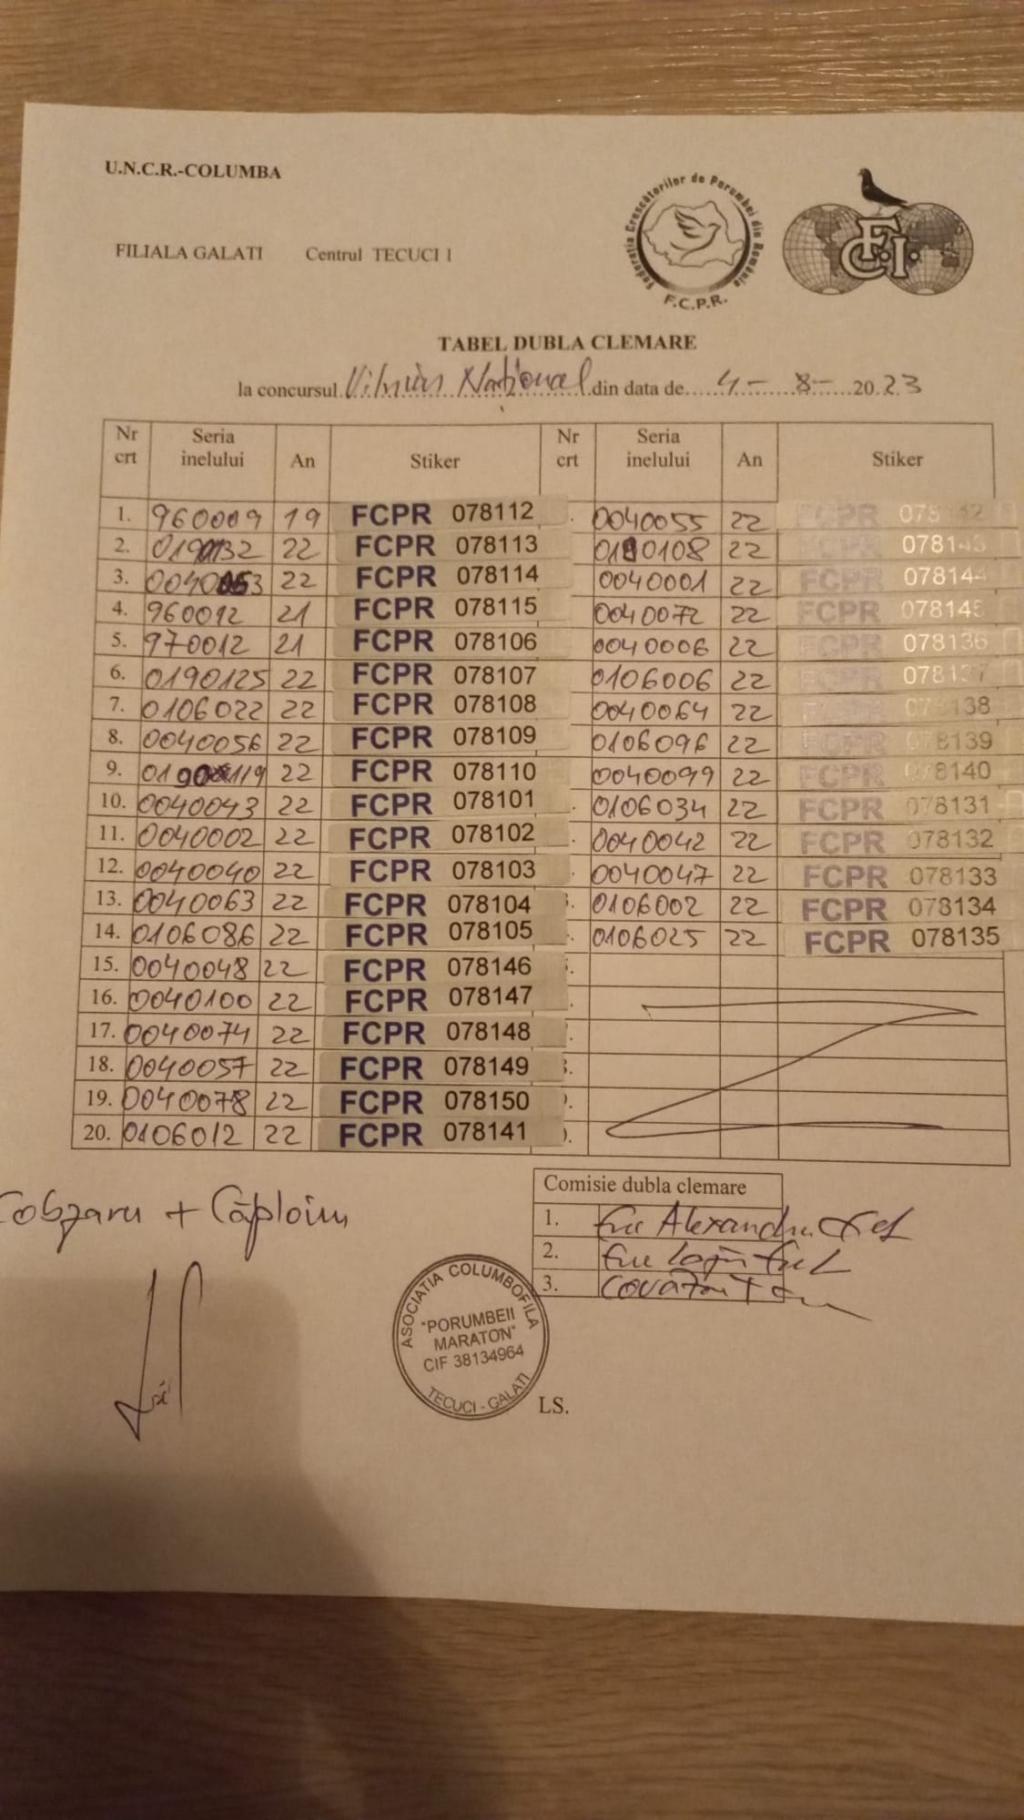 U.N.C.R.-COLUMBA
Federația Crescătorilor de Porumbei din România
F.C.P.R.
F.C.I.
FILIALA GALATI Centrul TECUCI 1
TABEL DUBLA CLEMARE
la concursul Vilnius Național din data de 4 - 8 - 2023
Nr crt Seria inelului An Stiker Nr crt Seria inelului An Stiker
1. 960009 19 FCPR 078112 0040055 22 FCPR
2. 0190132 22 FCPR 078113 0190108 22 FCPR 078143
3. 0040053 22 FCPR 078114 0040001 22 FCPR 078144
4. 960012 21 FCPR 078115 0040072 22 FCPR 078145
5. 970012 21 FCPR 078106 0040006 22 FCPR 078136
6. 0190125 22 FCPR 078107 0106006 22 FCPR 078137
7. 0106022 22 FCPR 078108 0040064 22 FCPR 078138
8. 0040056 22 FCPR 078109 0106096 22 FCPR 078139
9. 0190119 22 FCPR 078110 0040099 22 FCPR 078140
10. 0040043 22 FCPR 078101 0106034 22 FCPR 078131
11. 0040002 22 FCPR 078102 0040042 22 FCPR 078132
12. 0040040 22 FCPR 078103 0040047 22 FCPR 078133
13. 0040063 22 FCPR 078104 0106002 22 FCPR 078134
14. 0106086 22 FCPR 078105 0106025 22 FCPR 078135
15. 0040048 22 FCPR 078146
16. 0040100 22 FCPR 078147
17. 0040074 22 FCPR 078148
18. 0040057 22 FCPR 078149
19. 0040078 22 FCPR 078150
20. 0106012 22 FCPR 078141
Cobzaru + Căploiu
Comisie dubla clemare
1. Ene Alexandru
2. Ene
3.
ASOCIATIA COLUMBOFILA
"PORUMBEII
MARATON"
CIF 38134964
TECUCI - GALATI
LS.